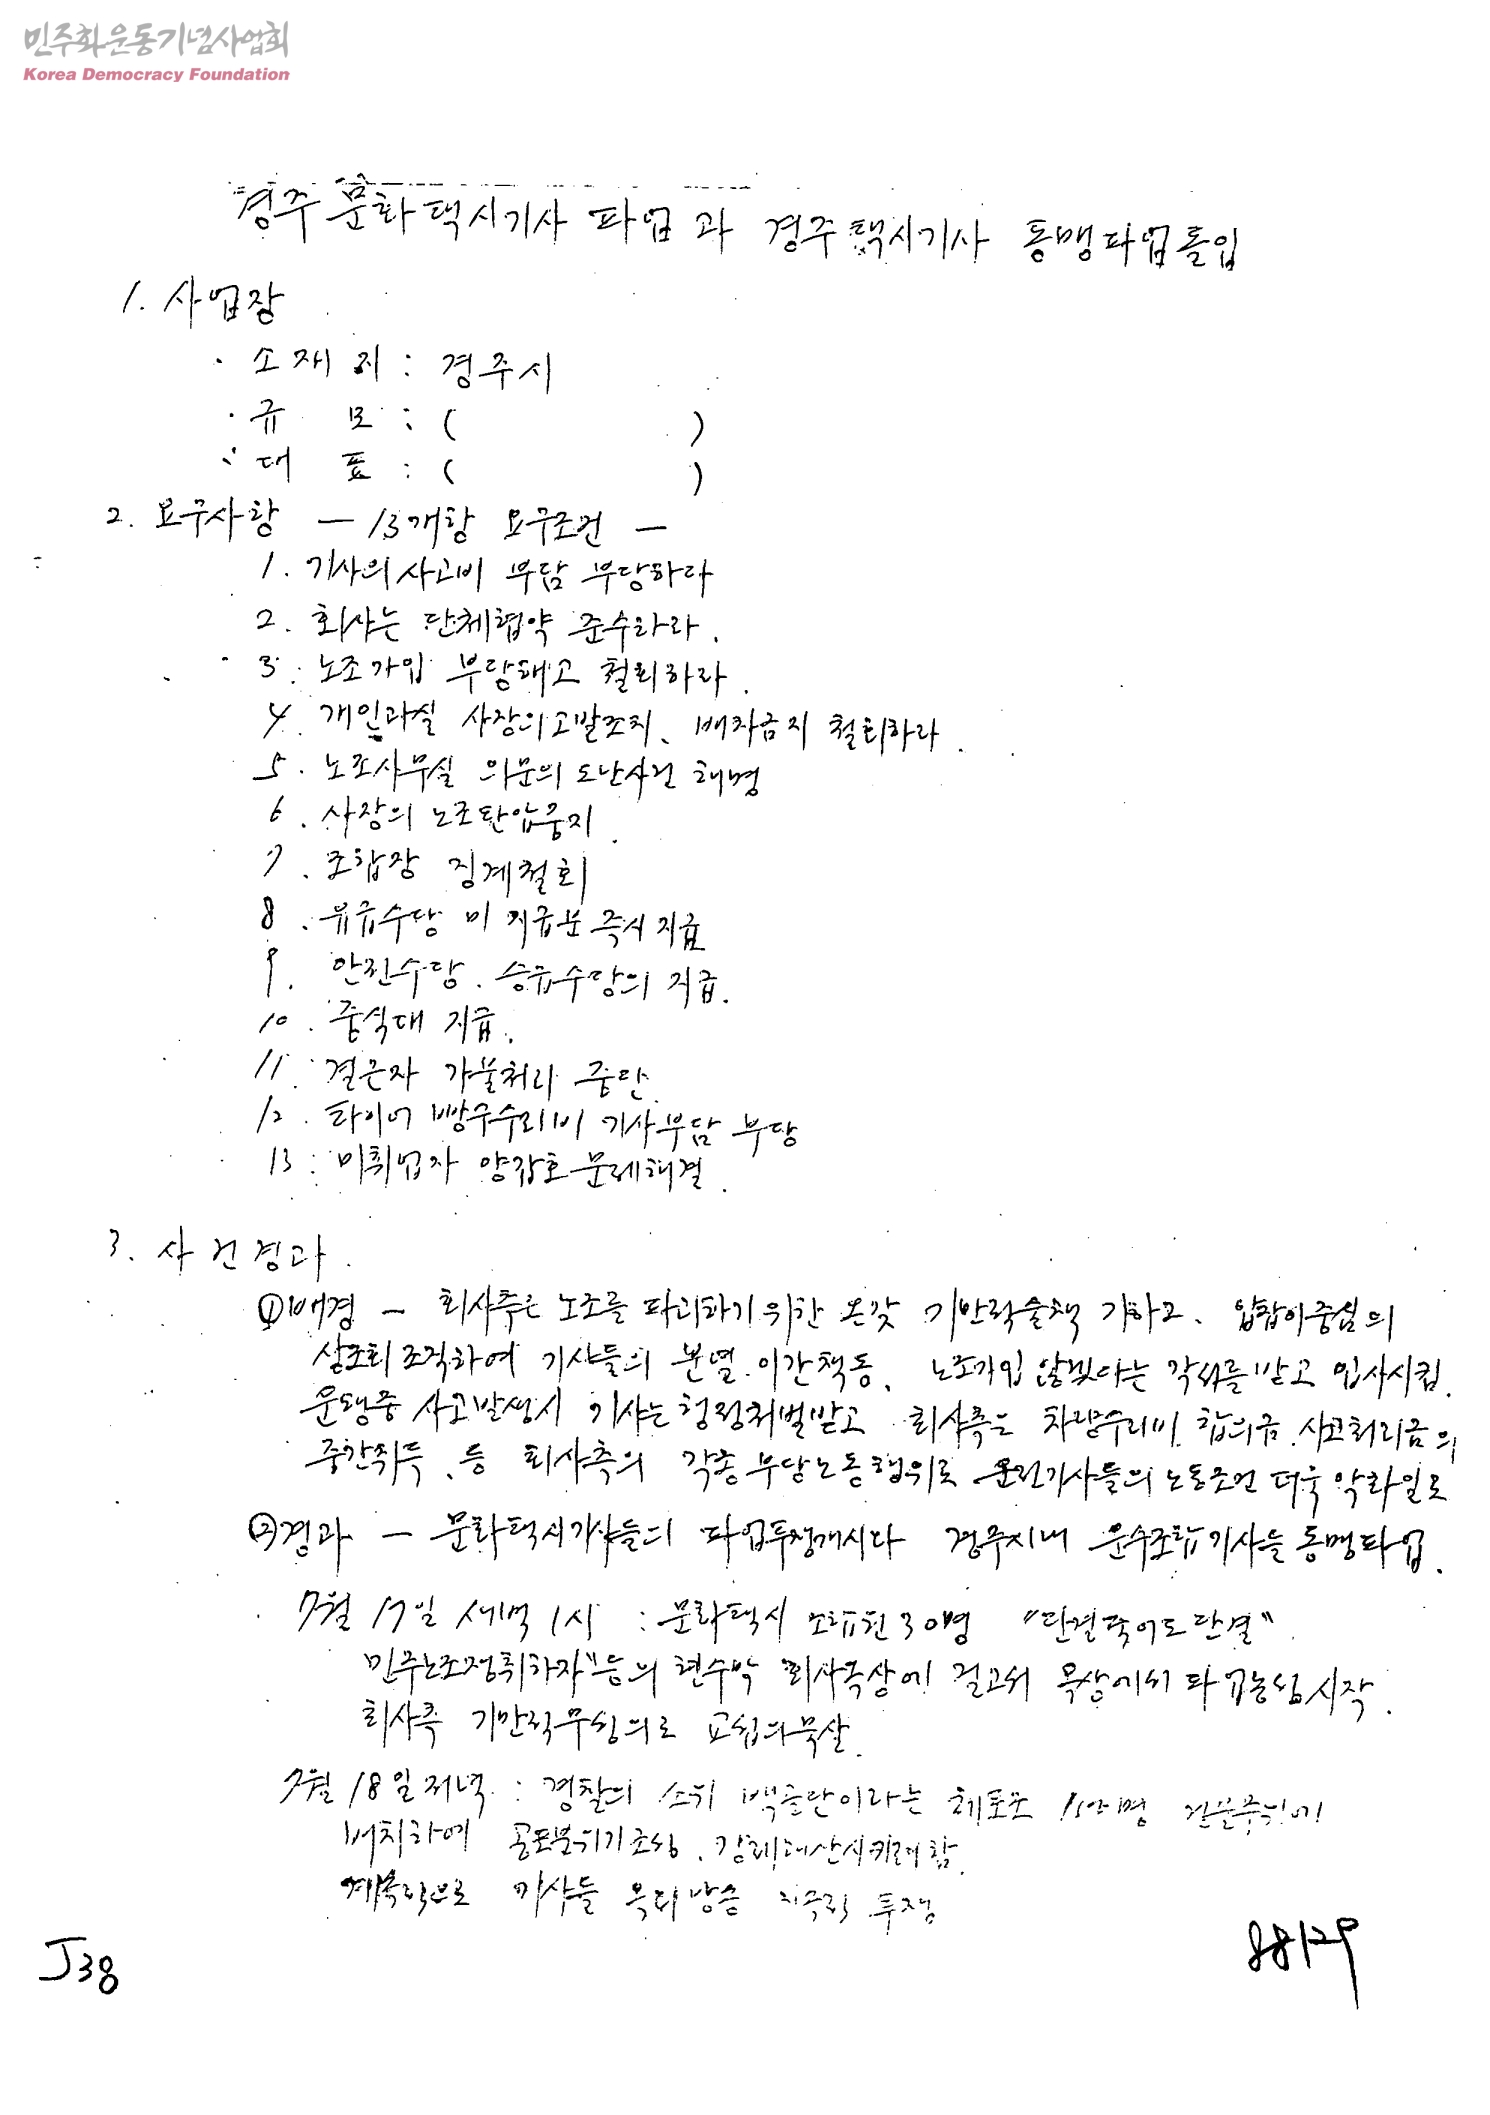 민주화운동기념사업회
Korea Democracy Foundation
경주 문화택시기사 파업과 경주택시기사 동맹파업돌입
1. 사업장
· 소재지 : 경주시
· 규 모 : ( )
· 대 표 : ( )
2. 요구사항 - 13개항 요구조건 -
1. 기사의 사고비 부담 부당하다
2. 회사는 단체협약 준수하라.
3. 노조가입 부당해고 철회하라.
4. 개인과실 사장의 고발조치, 배차금지 철회하라.
5. 노조사무실 의문의 도난사건 해명
6. 사장의 노조탄압중지.
7. 조합장 징계철회
8. 유급수당 미 지급분 즉시 지급
9. 안전수당. 승급수당의 지급.
10. 중식대 지급.
11. 결근자 가불처리 중단.
12. 타이어 빵구수리비 기사부담 부당
13. 미취업자 양갑호 문제해결.
3. 사건경과.
①배경 - 회사측은 노조를 파괴하기 위한 온갖 기만적술책 가하고, 입찹이중심의
상조회 조직하여 기사들의 분열. 이간책동, 노조가입 않겠다는 각서를 받고 입사시킴.
운행중 사고발생시 기사는 형정처벌받고 회사측은 차량수리비, 합의금, 사고처리금의
중간취득, 등 회사측의 각종 부당노동행위로 운전기사들의 노동조건 더욱 악화일로
②경과 - 문화택시기사들의 파업투쟁개시다 경주시내 운수조합기사들 동맹파업.
7월 17일 새벽 1시 : 문화택시 조합원 30명 "단결죽어도 단결"
"민주노조정취하자"등의 현수막 회사옥상에 걸고서 옥상에서 파업농성시작.
회사측 기만적무성의로 교섭의묵살.
7월 18일 저녁 : 경찰의 소위 백골단이라는 체포조 150명 건물주위에
배치하여 공포분위기조성, 강제해산시키려함.
계속적으로 기사들 옥외방송 지속적 투쟁
J38
88129